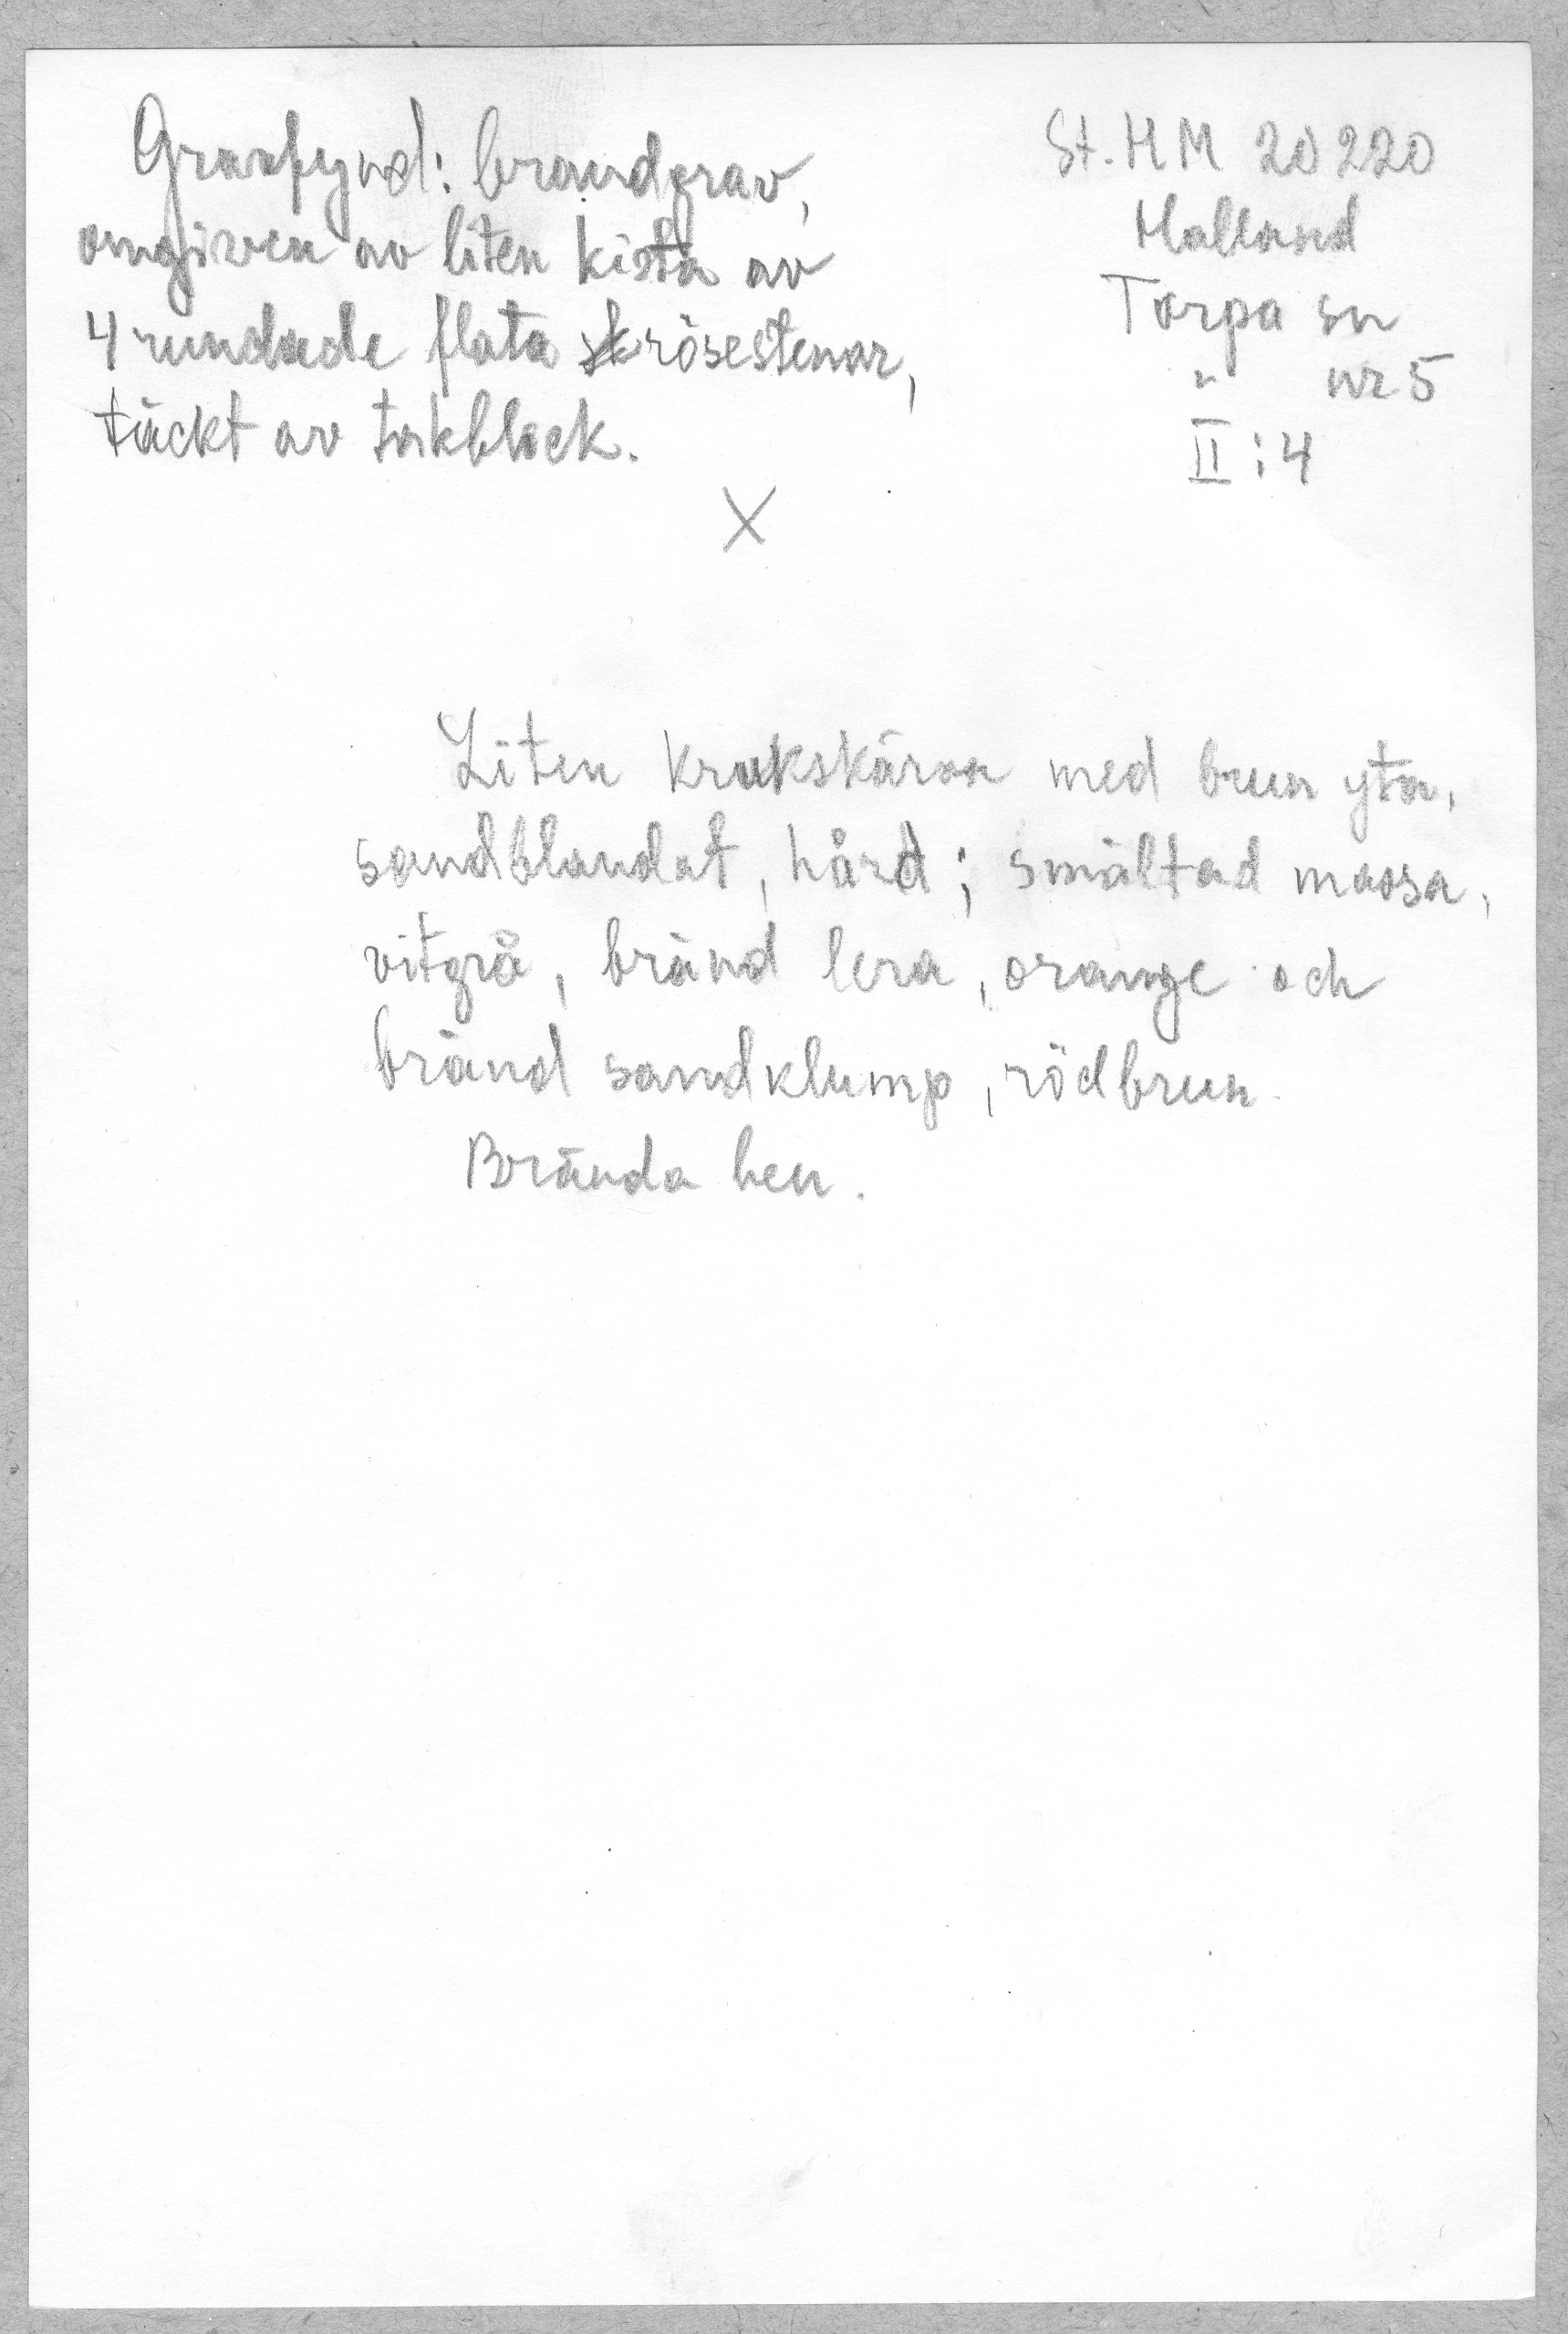 Gravfynd: brandgrav,
omgiven av liten kista av
4 rundade flata rösestenar,
täckt av takblock.
X
St. HM 20220
Halland
Torpa sn
" nr 5
II:4
Liten krukskärva med brun yta,
sandblandat, hård; smältad massa,
vitgrå, bränd lera, orange och
bränd sandklump, rödbrun.
Brända ben.